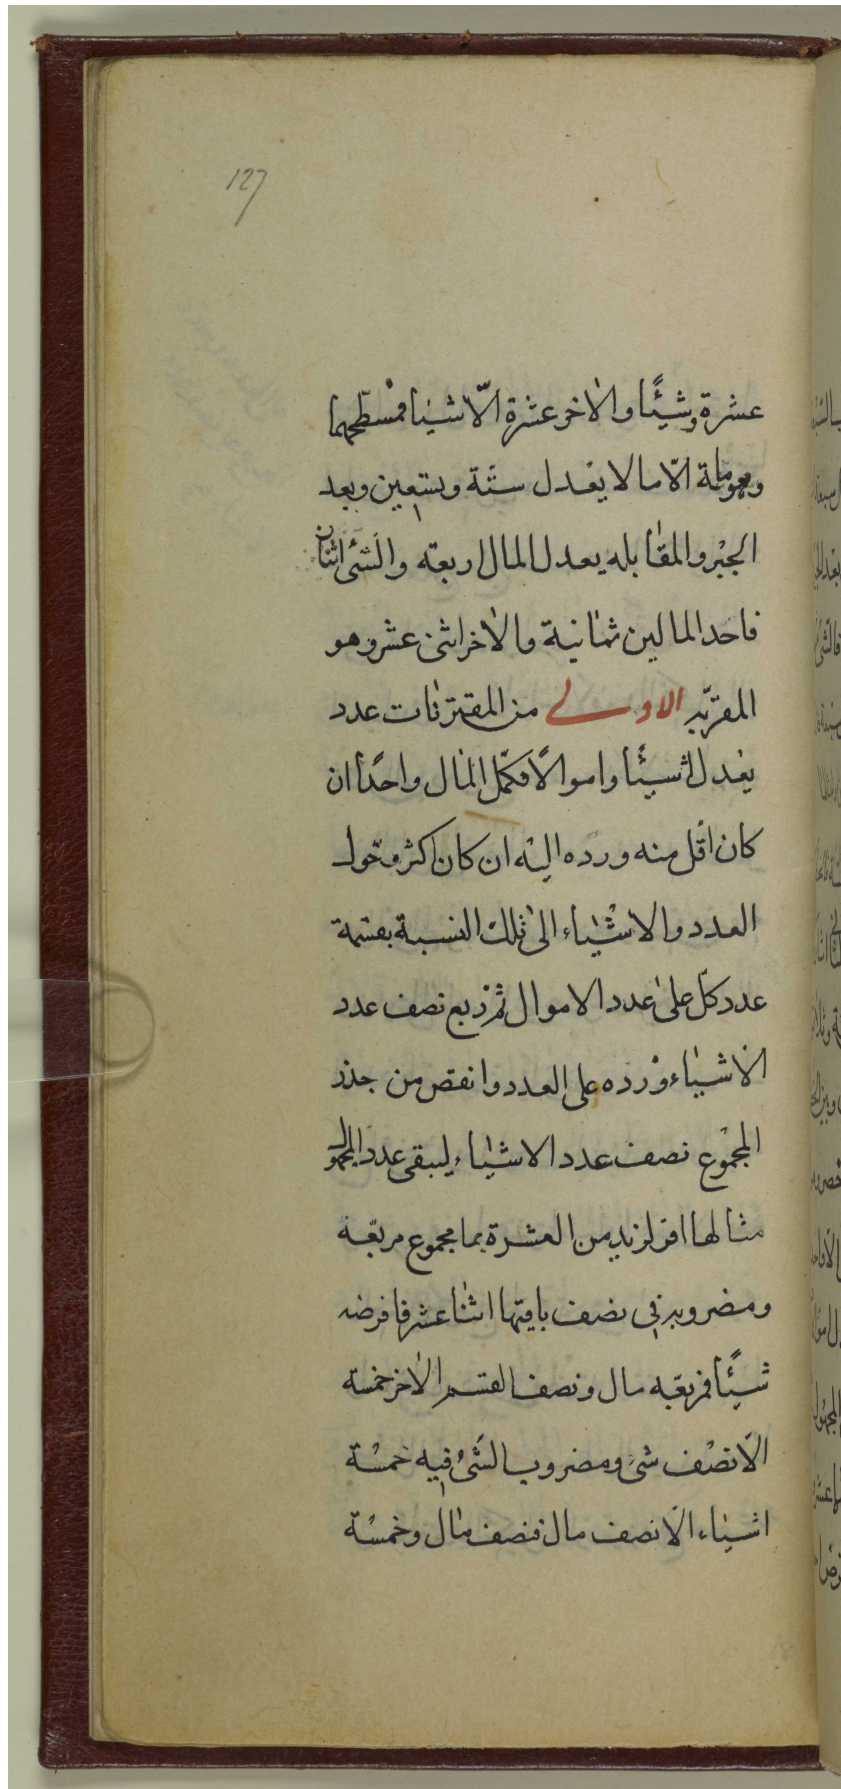 127
عشرة وشيئًا والاخر عشرة الّا شيئا فمسطّحهما
وهو مائة الّا مالا يعدل ستّة وتسعين وبعد
الجبر والمقابله يعدل المال اربعة والشئ اثنان
فاحد المالين ثمانية والاخر اثنى عشر وهو
المقرّبه الاولى من المقترنات عدد
يعدل اشيئًا واموالًا فكمّل المال واحدًا ان
كان اقل منه ورده اليه ان كان اكثر وحوّل
العدد والاشياء الى تلك النسبة بقسمة
عدد كلّ على عدد الاموال ثم ربع نصف عدد
الاشياء وزده على العدد وانقص من جذر
المجموع نصف عدد الاشياء ليبقى عدد المجهول
مثالها اقر لزيد من العشرة بما مجموع مربّعه
ومضروبه فى نصف باقيها اثنا عشر فافرضه
شيئًا فمربّعه مال ونصف القسم الاخر خمسة
الّا نصف شئ ومضروب الشئ فيه خمسة
اشياء الّا نصف مال فنصف مال وخمسة